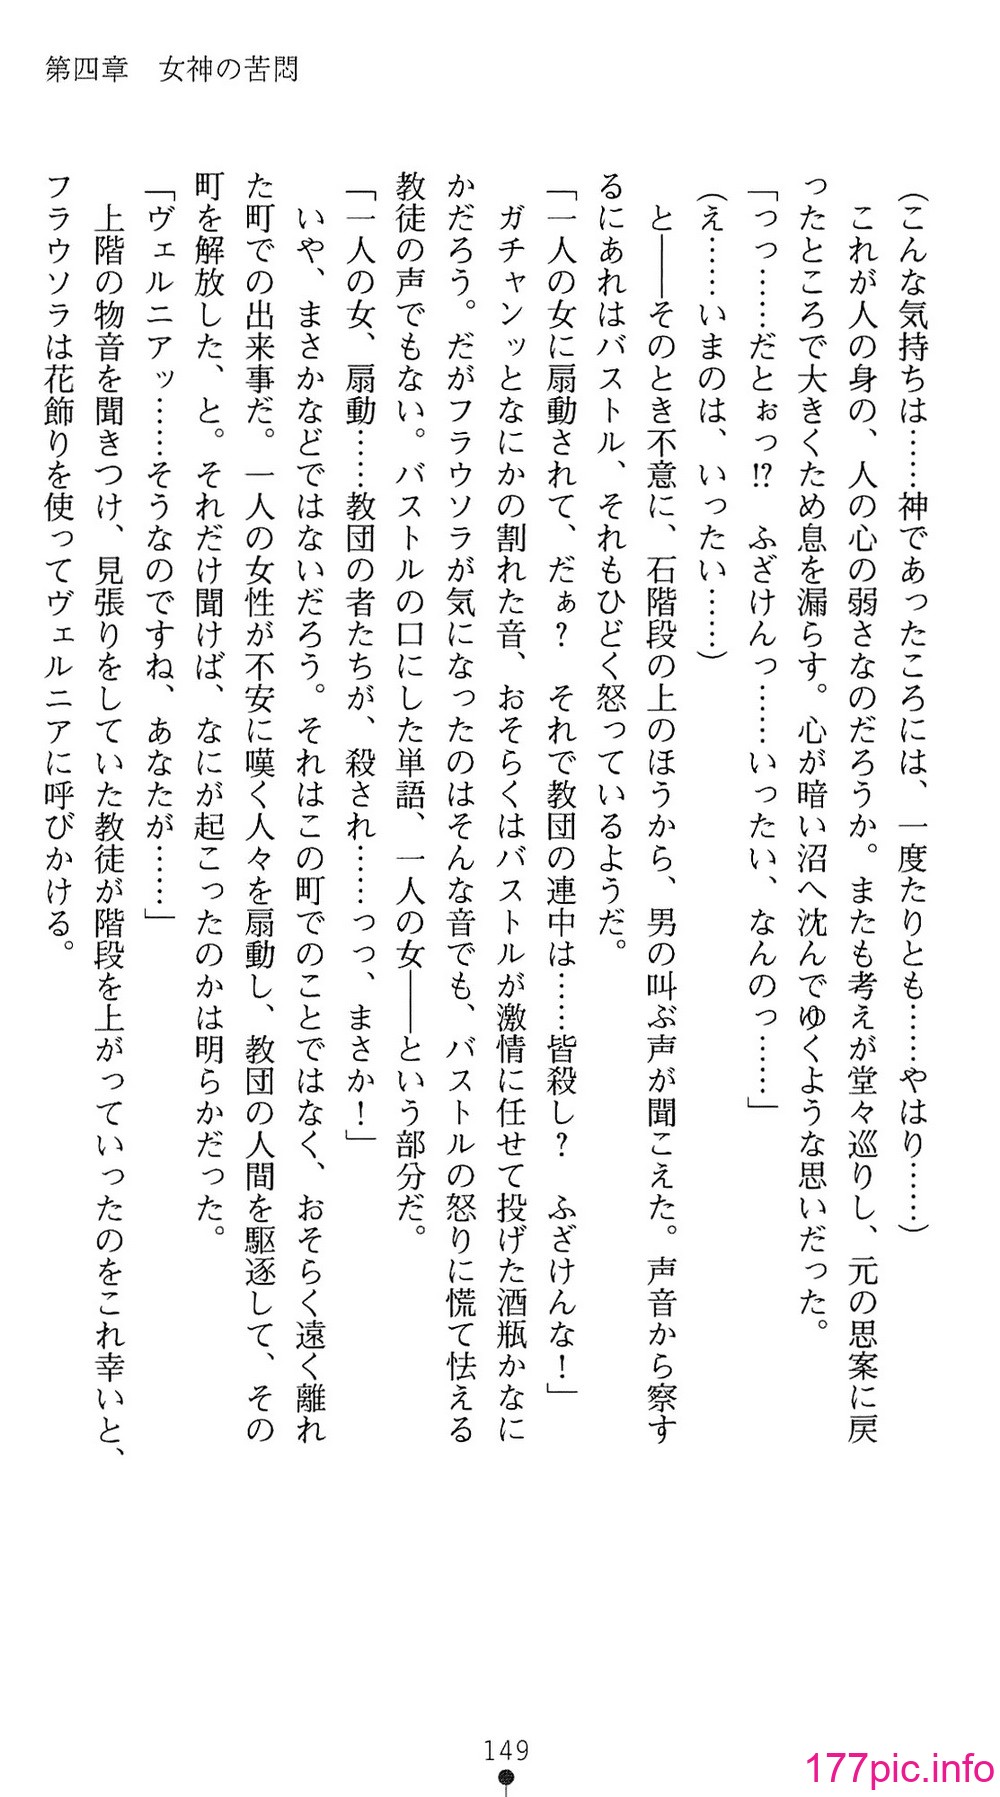 第四章　女神の苦悶
（こんな気持ちは……神であったころには、一度たりとも……やはり……）
　これが人の身の、人の心の弱さなのだろうか。またも考えが堂々巡りし、元の思案に戻
ったところで大きくため息を漏らす。心が暗い沼へ沈んでゆくような思いだった。
「っっ……だとぉっ!?　ふざけんっ……いったい、なんのっ……」
（え……いまのは、いったい……）
　と――そのとき不意に、石階段の上のほうから、男の叫ぶ声が聞こえた。声音から察す
るにあれはバストル、それもひどく怒っているようだ。
「一人の女に扇動されて、だぁ？　それで教団の連中は……皆殺し？　ふざけんな！」
　ガチャンッとなにかの割れた音、おそらくはバストルが激情に任せて投げた酒瓶かなに
かだろう。だがフラウソラが気になったのはそんな音でも、バストルの怒りに慌て怯える
教徒の声でもない。バストルの口にした単語、一人の女――という部分だ。
「一人の女、扇動……教団の者たちが、殺され……っっ、まさか！」
　いや、まさかなどではないだろう。それはこの町でのことではなく、おそらく遠く離れ
た町での出来事だ。一人の女性が不安に嘆く人々を扇動し、教団の人間を駆逐して、その
町を解放した、と。それだけ聞けば、なにが起こったのかは明らかだった。
「ヴェルニアッ……そうなのですね、あなたが……」
　上階の物音を聞きつけ、見張りをしていた教徒が階段を上がっていったのをこれ幸いと、
フラウソラは花飾りを使ってヴェルニアに呼びかける。
149
177pic.info